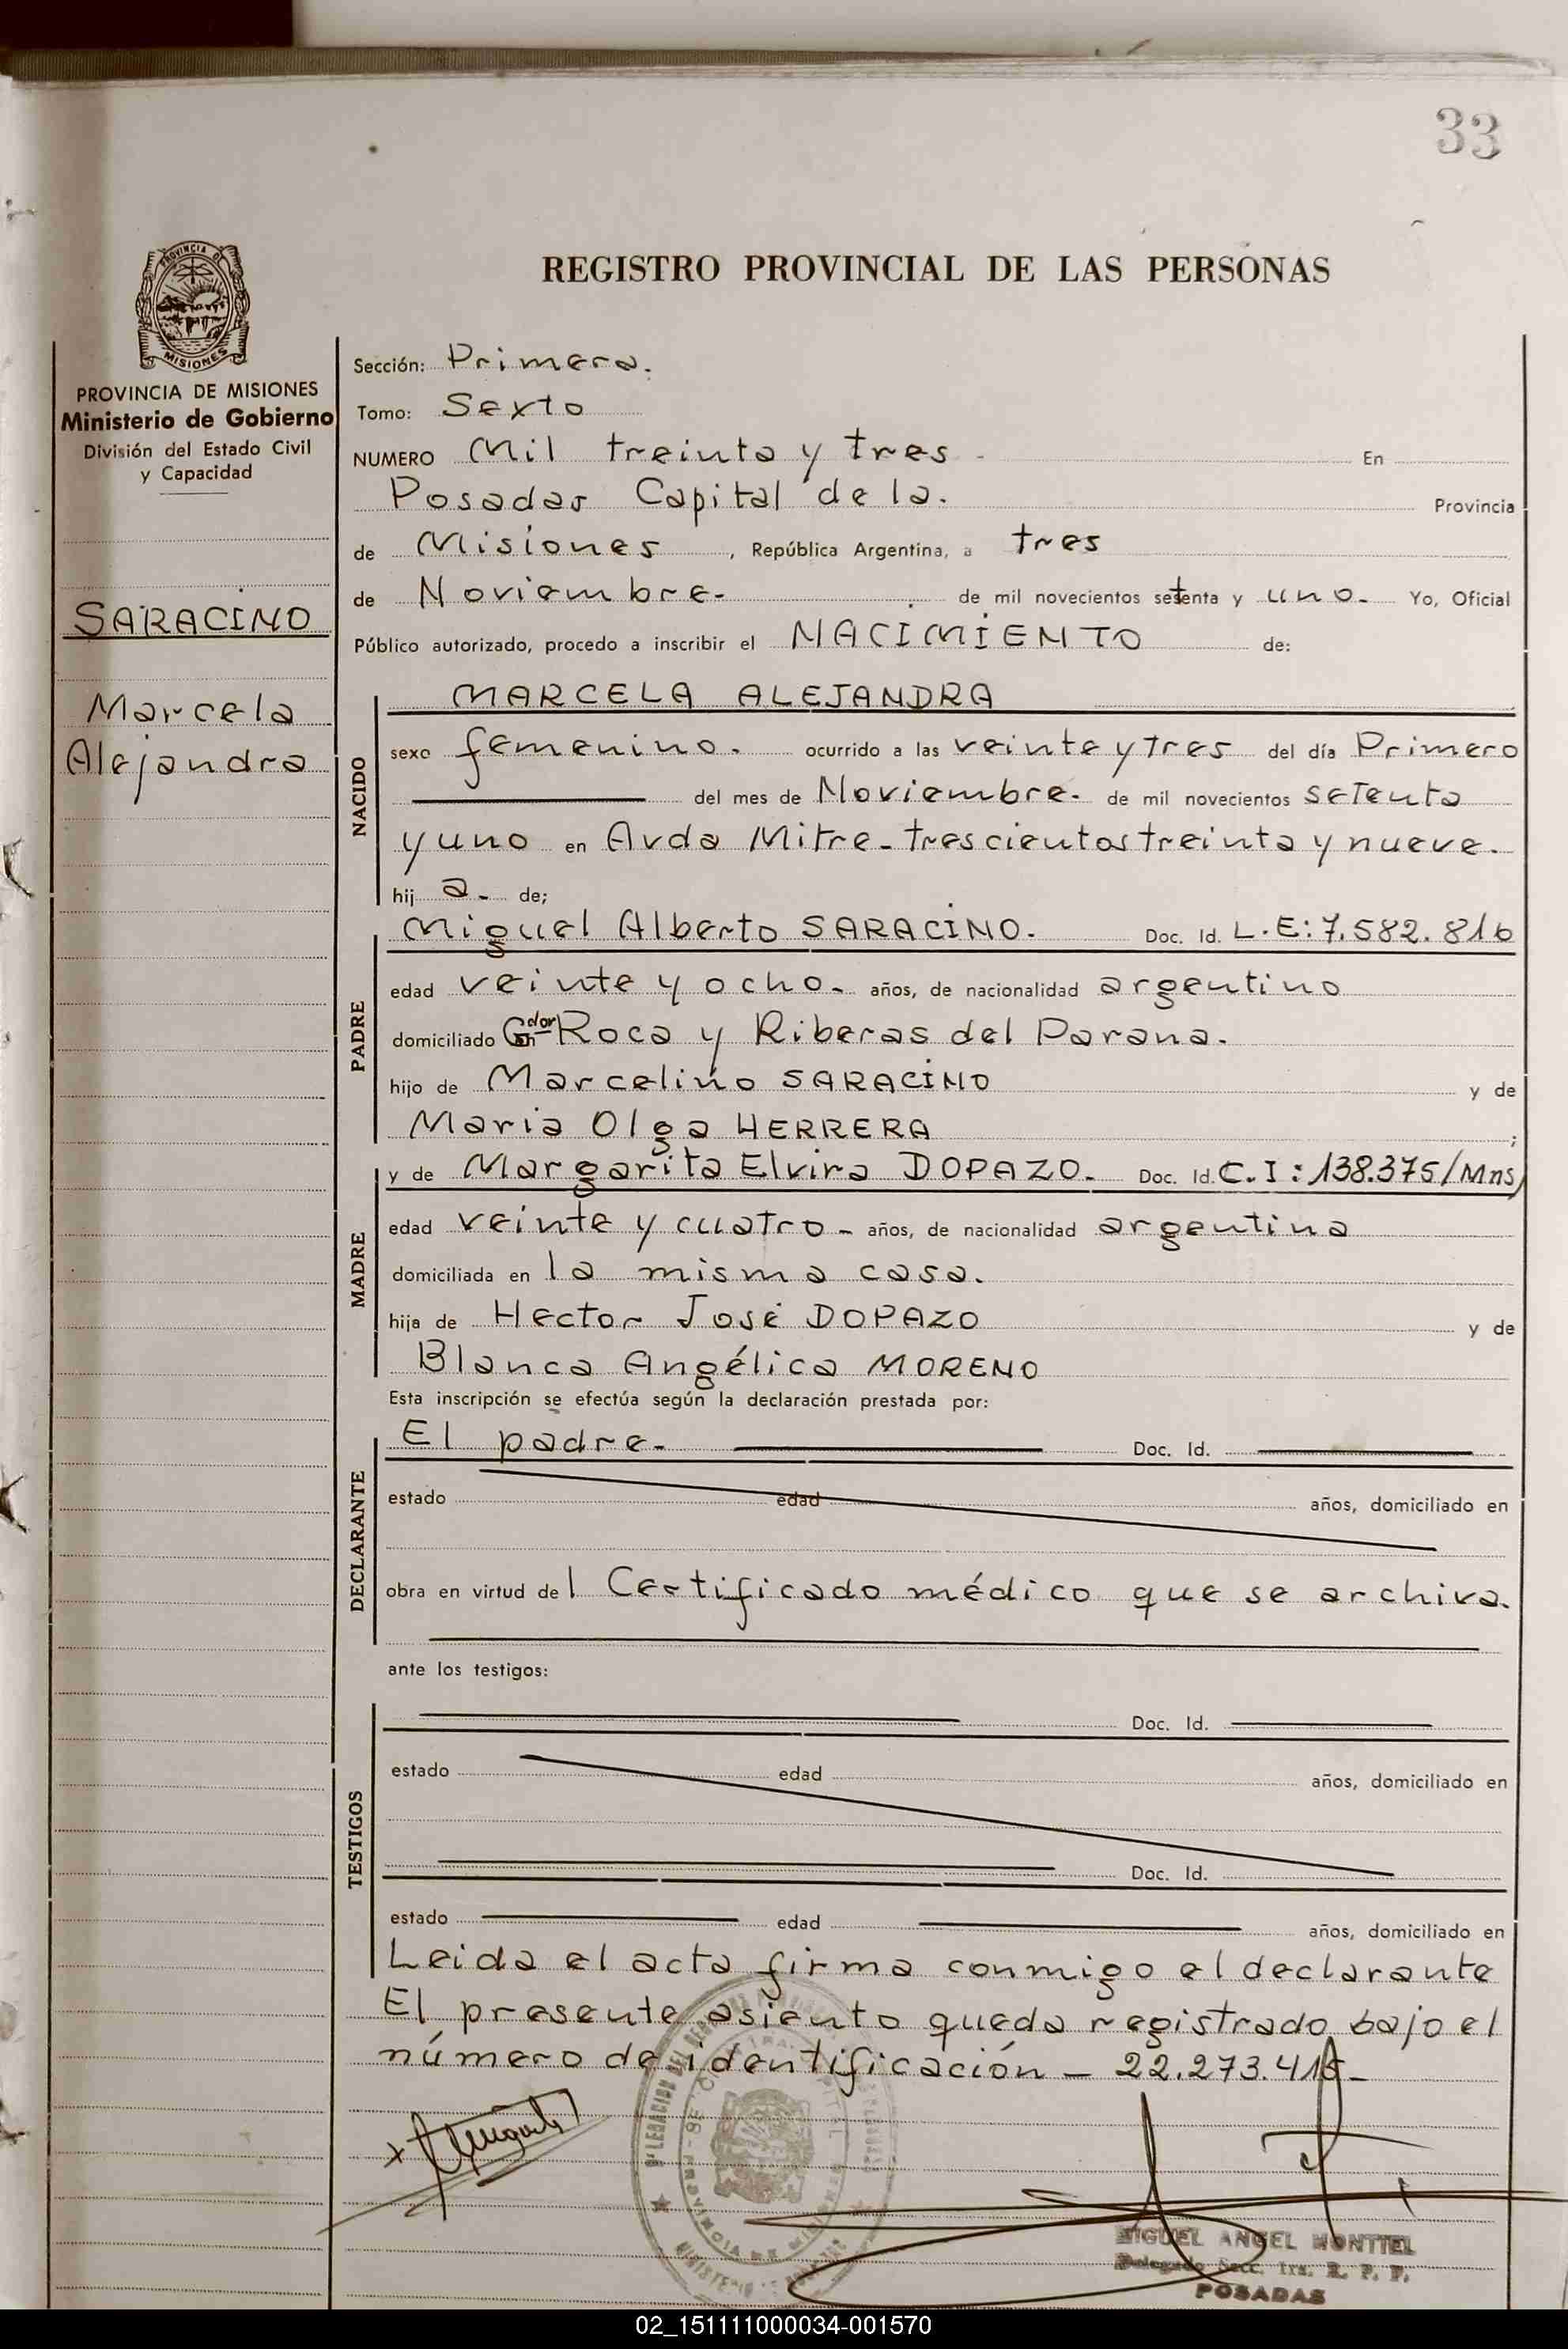 33
PROVINCIA DE
MISIONES
PROVINCIA DE MISIONES
Ministerio de Gobierno
División del Estado Civil
y Capacidad
SARACINO
Marcela
Alejandra
REGISTRO PROVINCIAL DE LAS PERSONAS
Sección: Primera.
Tomo: Sexto
NUMERO Mil treinta y tres - En
Posadas Capital de la. Provincia
de Misiones, República Argentina, a tres
de Noviembre. de mil novecientos setenta y uno. Yo, Oficial
Público autorizado, procedo a inscribir el NACIMIENTO de:
NACIDO
MARCELA ALEJANDRA
sexo femenino. ocurrido a las veinte y tres del día Primero
del mes de Noviembre. de mil novecientos setenta
y uno en Avda Mitre - trescientos treinta y nueve.
hij a. de;
PADRE
Miguel Alberto SARACINO. Doc. Id. L.E: 7.582.816
edad veinte y ocho. años, de nacionalidad argentino
domiciliado Gdor Roca y Riberas del Parana.
hijo de Marcelino SARACINO y de
Maria Olga HERRERA ;
MADRE
y de Margarita Elvira DOPAZO. Doc. Id. C.I: 138.375/Mns
edad veinte y cuatro - años, de nacionalidad argentina
domiciliada en la misma casa.
hija de Hector José DOPAZO y de
Blanca Angélica MORENO
Esta inscripción se efectúa según la declaración prestada por:
DECLARANTE
El padre. Doc. Id.
estado edad años, domiciliado en
obra en virtud del Certificado médico que se archiva.
ante los testigos:
TESTIGOS
Doc. Id.
estado edad años, domiciliado en
Doc. Id.
estado edad años, domiciliado en
Leida el acta firma conmigo el declarante
El presente asiento queda registrado bajo el
número de identificación - 22.273.415-
MIGUEL ANGEL MONTTEL
Delegado Secc. 1ra. R. P. P.
POSADAS
02_151111000034-001570